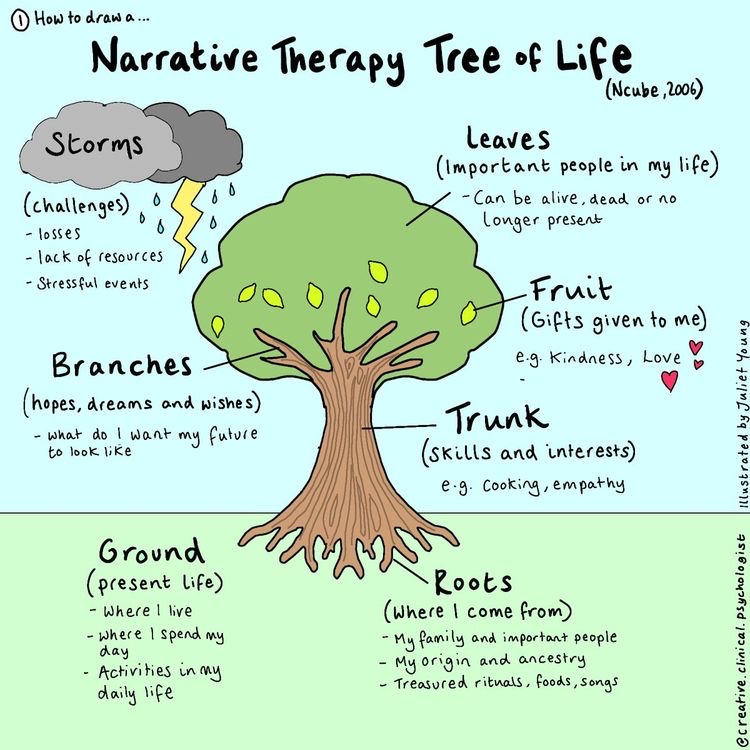 ① How to draw a...
Narrative Therapy Tree of Life
(Ncube, 2006)
Storms
(challenges)
- losses
- lack of resources
- Stressful events
Leaves
(Important people in my life)
- Can be alive, dead or no
longer present
Fruit
(Gifts given to me)
e.g. Kindness, Love
-
Branches
(hopes, dreams and wishes)
- what do I want my future
to look like
Trunk
(skills and interests)
e.g. cooking, empathy
Ground
(present life)
- Where I live
- Where I spend my
day
- Activities in my
daily life
Roots
(Where I come from)
- My family and important people
- My origin and ancestry
- Treasured rituals, foods, songs
Illustrated by Juliet Young
@creative.clinical.psychologist